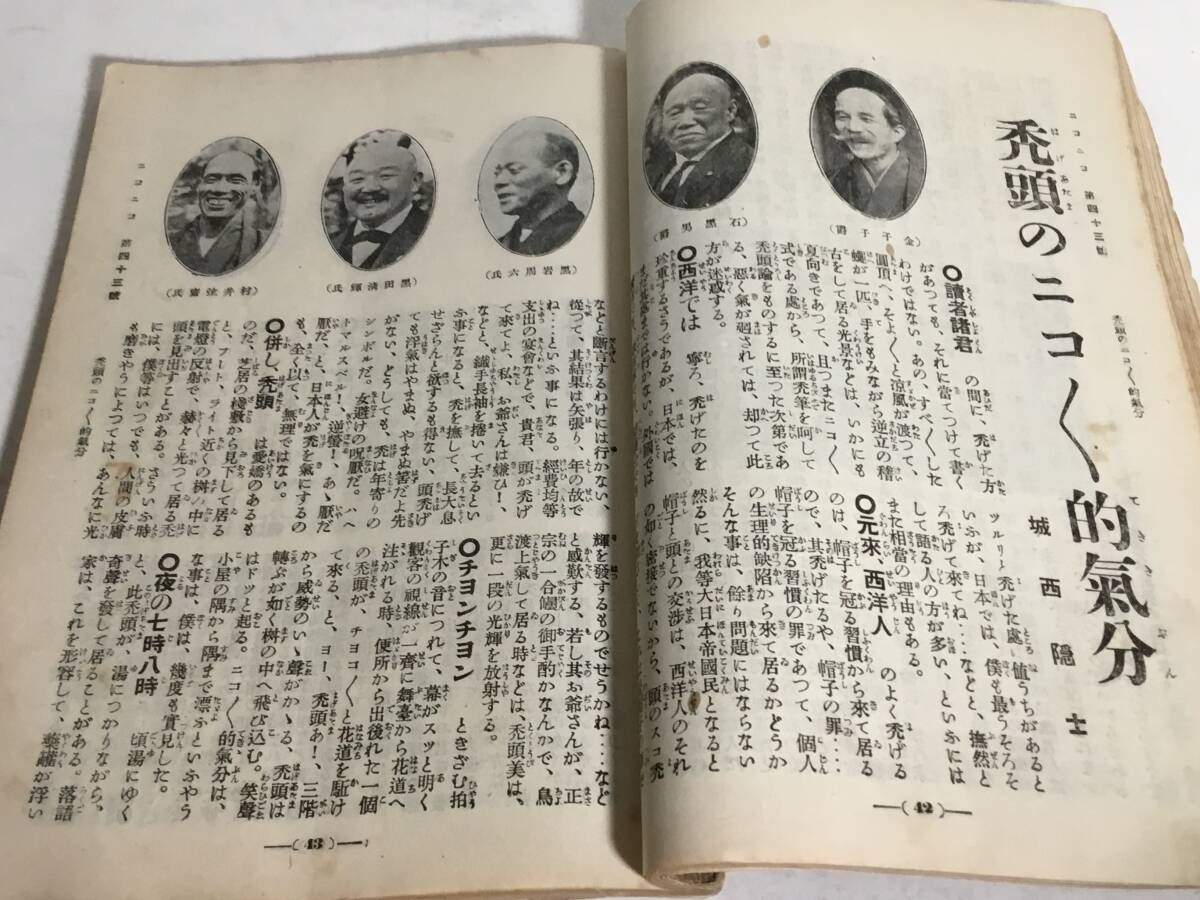 ニコニコ 第四十三號
禿頭のニコ〱的氣分
城西隱士
禿頭のニコ〱的氣分
(金子子爵)
(石黑男爵)
〇讀者諸君 の間に、禿げた方
があつても、それに當てつけて書く
わけではない。あの、すべ〱した
圓頂へ、そよ〱と凉風が渡つて、
蠅が一匹、手をもみながら逆立の稽
古をして居る光景などは、いかにも
夏向きであつて、且つまたニコ〱
式である處から、所謂禿筆を呵して
禿頭論をものするに至つた次第であ
る、惡く氣が廻されては、却つて此
方が迷惑する。
〇西洋では 寧ろ、禿げたのを
珍重するさうであるが、日本では、
まだ其處まで行かない。外國では
ツルリと禿げた處に値うちがあると
いふが、日本では、僕も最うそろそ
ろ禿げて來てね‥‥などと、撫然と
して語る人の方が多い、といふには
また相當の理由もある。
〇元來西洋人 のよく禿げる
のは、帽子を冠る習慣から來て居る
ので、其禿げたるや、帽子の罪‥‥
帽子を冠る習慣の罪であつて、個人
の生理的缺陷から來て居るかどうか
そんな事は、餘り問題にはならない
然るに、我等大日本帝國民となると
帽子と頭との交渉は、西洋人のそれ
の如く密接でないから、頭のスコ禿
—(42)—
(黑岩周六氏)
(黑田淸輝氏)
(村井弦齋氏)
ニコニコ 第四十三號
などと斷言するわけには行かない、
從つて、其結果は矢張り、年の故で
ね‥‥といふ事になる。經費均等
支出の宴會などで、貴君、頭が禿げ
て來てよ、私、お爺さんは嫌ひ!、
などと、纎手長袖を捲いて去るとい
ふ事になると、禿を撫して、長大息
せざらんと欲するも得ない、頭禿げ
ても浮氣はやまぬ、やまぬ筈だよ先
がない、どうしても、禿は年寄りの
シンボルだ。女避けの呪厭だ。ハヘ
トマルスベル!、逆螢!、あゝ厭だ
厭だ、と、日本人が禿を氣にするの
も、全く以て、無理ではない。
〇併し、禿頭 は愛嬌のあるも
のだ、芝居の棧敷から見下して居る
と、フート、ライト近くの桝ノ中に
電燈の反射で、赫々と光つて居る禿
頭を見出すことがある。さういふ時
には、僕等はいつでも、人間の皮膚
も磨きやうによつては、あんなに光
禿頭のニコ〱的氣分
輝を發するものでせうかね‥‥など
と感歎する、若し其お爺さんが、正
宗の一合罎の御手酌かなんかで、鳥
渡上氣して居る時などは、禿頭美は、
更に一段の光輝を放射する。
〇チヨンチヨン ときざむ拍
子木の音につれて、幕がスツと明く
觀客の視線が一齊に舞臺から花道へ
注がれる時、便所から出後れた一個
の禿頭が、チヨコ〱と花道を駈け
て來る、と、ヨー、禿頭あ!、三階
から威勢のいゝ聲がかゝる、禿頭は
轉ぶが如く桝の中へ飛び込む。笑聲
はドツと起る。ニコ〱的氣分は、
小屋の隅から隅まで漂ふといふやう
な事は、僕は、幾度も實見した。
〇夜の七時八時 頃湯にゆく
と、此禿頭が、湯につかりながら、
奇聲を發して居ることがある。落語
家は、これを形容して、藥罐が浮い
—(43)—